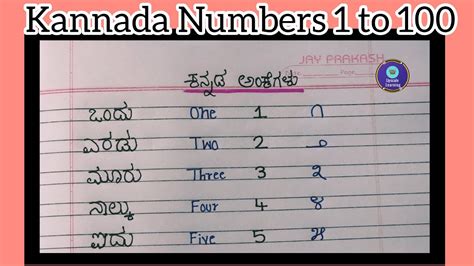 Kannada Numbers 1 to 100
JAY PRAKASH
ಕನ್ನಡ ಅಂಕೆಗಳು
ಒಂದು One 1 ೧
ಎರಡು Two 2 ೨
ಮೂರು Three 3 ೩
ನಾಲ್ಕು Four 4 ೪
ಐದು Five 5 ೫